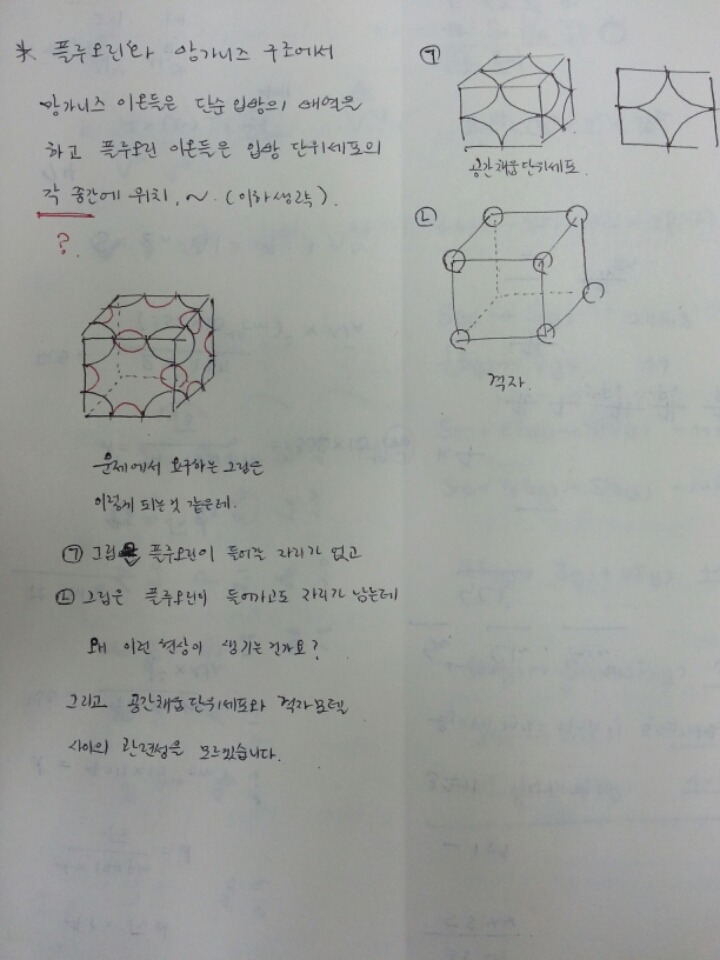 * 플루오린와 망가니즈 구조에서
망가니즈 이온들은 단순입방의 배열을
하고 플루오린 이온들은 입방 단위세포의
각 중간에 위치, ~. (이하생략).
?.
문제에서 요구하는 그림은
이렇게 되는것 같은데.
㉠ 그림은 플루오린이 들어갈 자리가 없고
㉡ 그림은 플루오린이 들어가고도 자리가 남는데
왜 이런 현상이 생기는건가요?
그리고 공간채움단위세포와 격자모델
사이의 관련성을 모르겠습니다.
㉠
공간채움단위세포.
㉡
격자.